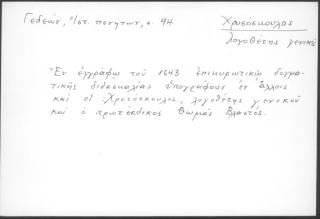 Γεδεών, Πατ. πινητων, σ. 94
Χρυσόσκουλος
λογοθέτης γενικοῦ
Ἐν ἐγγράφῳ τοῦ 1643 ἐπικυρωτικῷ δογμα-
τικῆς διδασκαλίας ὑπογράφουν ἐν ἄλλοις
καὶ οἱ Χρυσόσκουλος, λογοθέτης γενικοῦ
καὶ ὁ πρωτέκδικος Θωμᾶς Βλαστός.